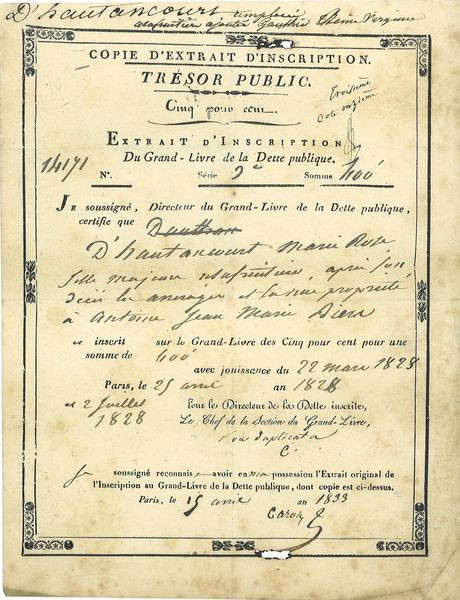 D'hautancourt
COPIE D'EXTRAIT D'INSCRIPTION.
TRÉSOR PUBLIC.
Cinq pour cent.
Troisième
EXTRAIT D'INSCRIPTION
Du Grand-Livre de la Dette publique.
14171
N°. Série 2e Somme 400f
JE soussigné, Directeur du Grand-Livre de la Dette publique,
certifie que
D'hautancourt Marie Rose
fille majeure usufruitière, après son
décès et la nue propriété
à Antoine Jean Marie
est inscrit sur le Grand-Livre des Cinq pour cent pour une
somme de 400f
avec jouissance du 22 mars 1828
Paris, le 25 avril an 1828
et 2 juillet Pour le Directeur de la Dette inscrite,
1828 Le Chef de la Section du Grand-Livre,
duplicata
Je soussigné reconnais avoir en ma possession l'Extrait original de
l'Inscription au Grand-Livre de la Dette publique, dont copie est ci-dessus.
Paris, le 15 avril an 1833
Caron